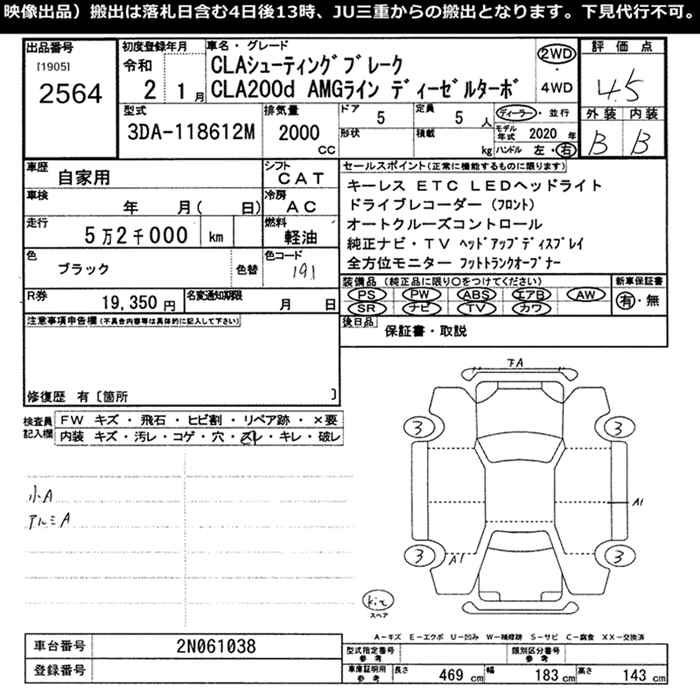 映像出品）搬出は落札日含む4日後13時、JU三重からの搬出となります。下見代行不可。
出品番号
[1905]
2564
初度登録年月
令和
2 1月
車名・グレード
CLAシューティングブレーク
CLA200d AMGライン ディーゼルターボ
2WD
・
4WD
評価点
4.5
外装 内装
B B
型式
3DA-118612M
排気量
2000
CC
ドア
5
定員
5 人
形状
積載
kg
ディーラー・並行
モデル年式 2020 年
ハンドル 左・右
車歴
自家用
シフト
CAT
車検
年 月( 日)
冷房
AC
走行
5万2千000 km
燃料
軽油
色
ブラック
色替
色コード
191
R券
19,350 円
名変通知期限
月 日
セールスポイント(正常に機能するものに限ります)
キーレス ETC LEDヘッドライト
ドライブレコーダー (フロント)
オートクルーズコントロール
純正ナビ・TV ヘッドアップディスプレイ
全方位モニター フットトランクオープナー
装備品(純正品に限り○をつけてください)
PS PW ABS エアB AW
SR ナビ TV カワ
新車保証書
有・無
後日品
保証書・取説
注意事項申告欄(不具合内容等は具体的に記入して下さい)
修復歴 有〔箇所 〕
検査員
記入欄
FW キズ・飛石・ヒビ割・リペア跡・×要
内装 キズ・汚レ・コゲ・穴・スレ・キレ・破レ
小A
アルミA
下A
3
3
A1
3
A1
3
kit
スペア
A-キズ E-エクボ U-凹み W-補修跡 S-サビ C-腐食 XX-交換済
車台番号
2N061038
登録番号
型式指定番号
参考
類別区分番号
参考
車庫証明用
参考
長さ 469 cm
幅 183 cm
高さ 143 cm